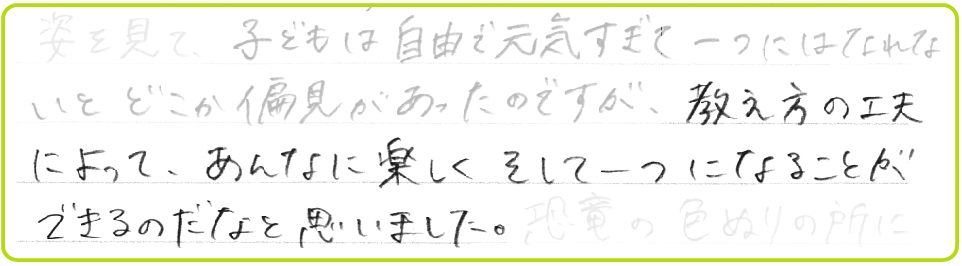 姿を見て、子どもは自由で元気すぎて一つにはなれな
いと どこか偏見があったのですが、教え方の工夫
によって、あんなに楽しく そして一つになることが
できるのだなと思いました。恐竜の色ぬりの所に